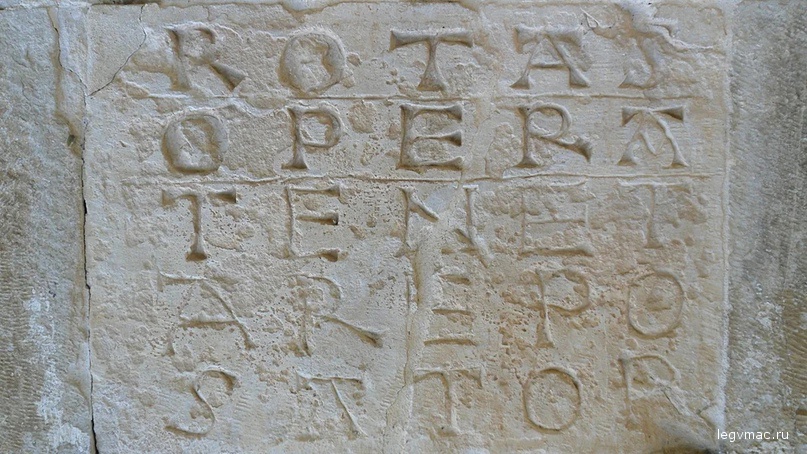 ROTAS
OPERA
TENET
AREPO
SATOR
legvmac.ru